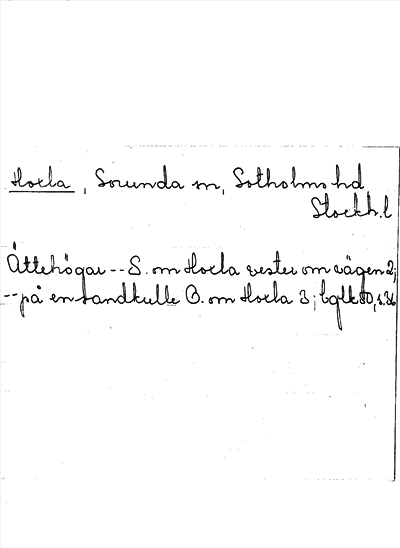 Hoxla, Sorunda sn, Sotholms hd
Stockh.l
Ättehögar -- S. om Hoxla vester om vägen 2;
-- på en sandkulle O. om Hoxla 3; bglk 80, s.36